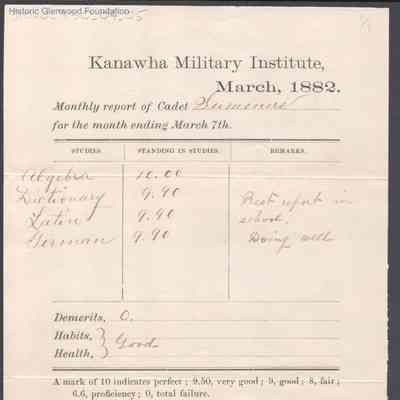 Historic Glenwood Foundation
Kanawha Military Institute,
March, 1882.
Monthly report of Cadet Summers
for the month ending March 7th.
STUDIES. STANDING IN STUDIES. REMARKS.
Algebra 10.00
Dictionary 9.90 Best report in
Latin 9.90 school.
German 9.90 Doing well
Demerits, 0.
Habits, } Good
Health,
A mark of 10 indicates perfect; 9.50, very good; 9, good; 8, fair;
6.6, proficiency; 0, total failure.